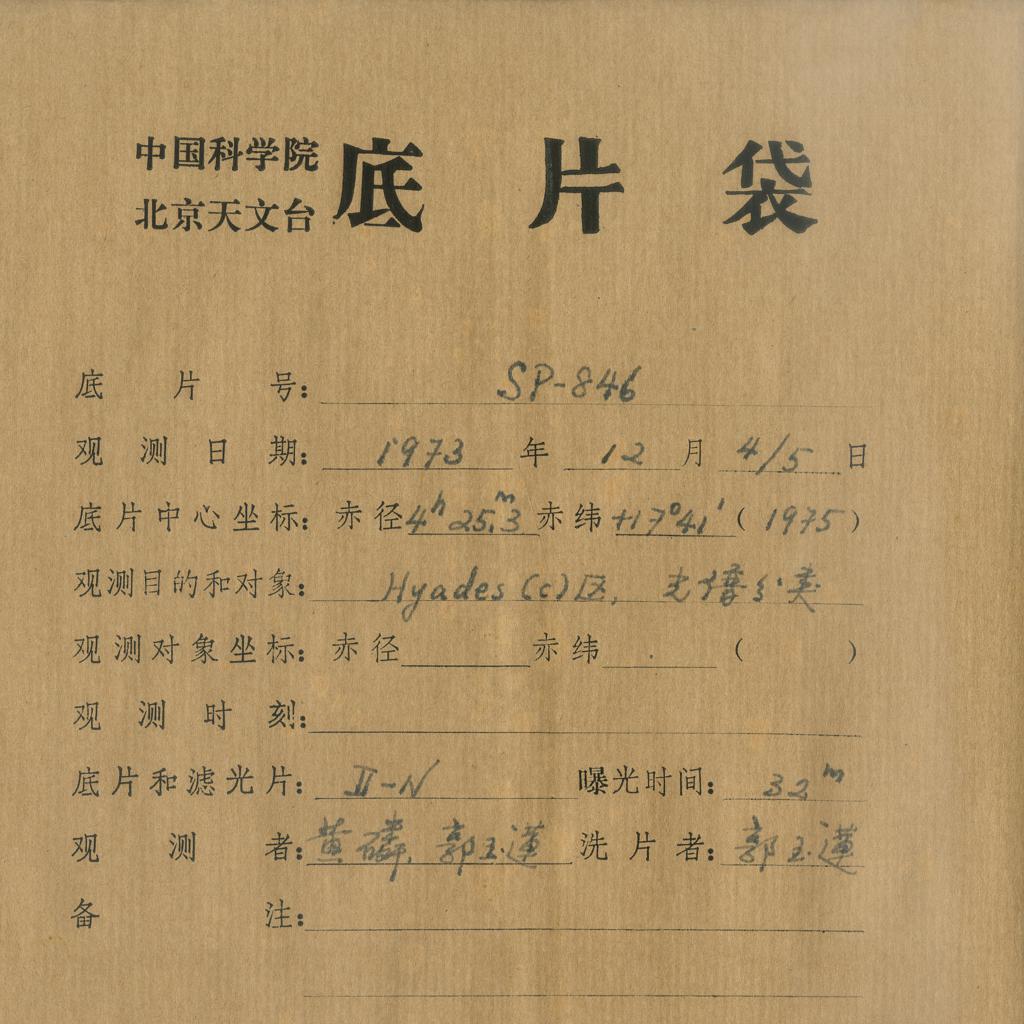 中国科学院
北京天文台
底片袋
底片号: SP-846
观测日期: 1973年12月4/5日
底片中心坐标: 赤径4ʰ25ᵐ.3赤纬+17°41′(1975)
观测目的和对象: Hyades (c)区, 光谱分类
观测对象坐标: 赤径 赤纬 ( )
观测时刻:
底片和滤光片: II-N 曝光时间: 32ᵐ
观测者: 黄磷, 郭玉莲 洗片者: 郭玉莲
备注: